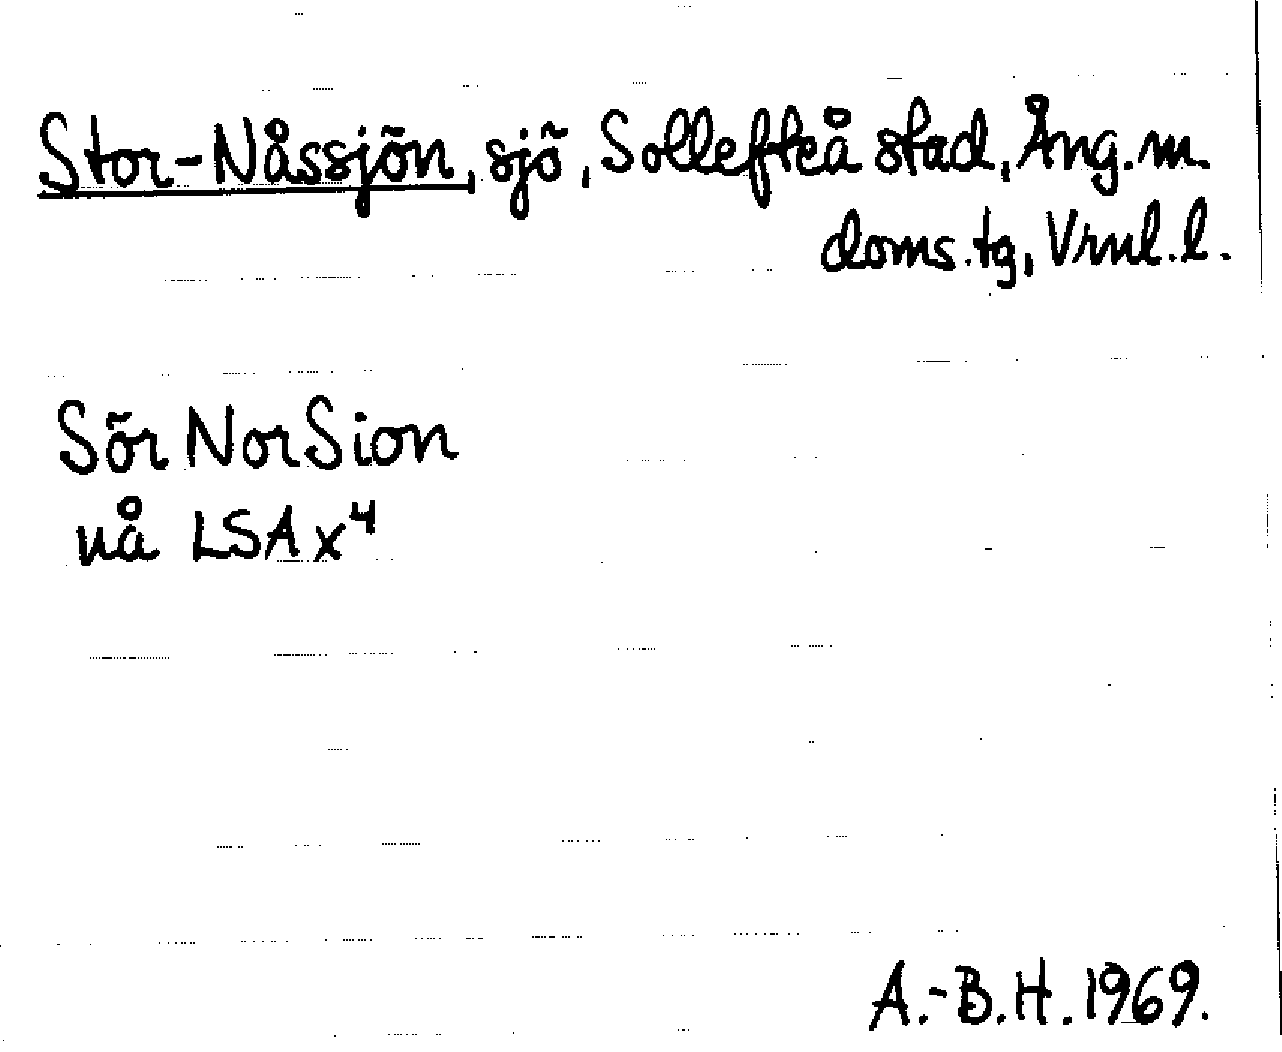 Stor-Nåssjön, sjö, Sollefteå stad, Ång.m.
doms.tg, Vrnl.l.
Sör NorSion
nå LSA x⁴
A.-B.H. 1969.